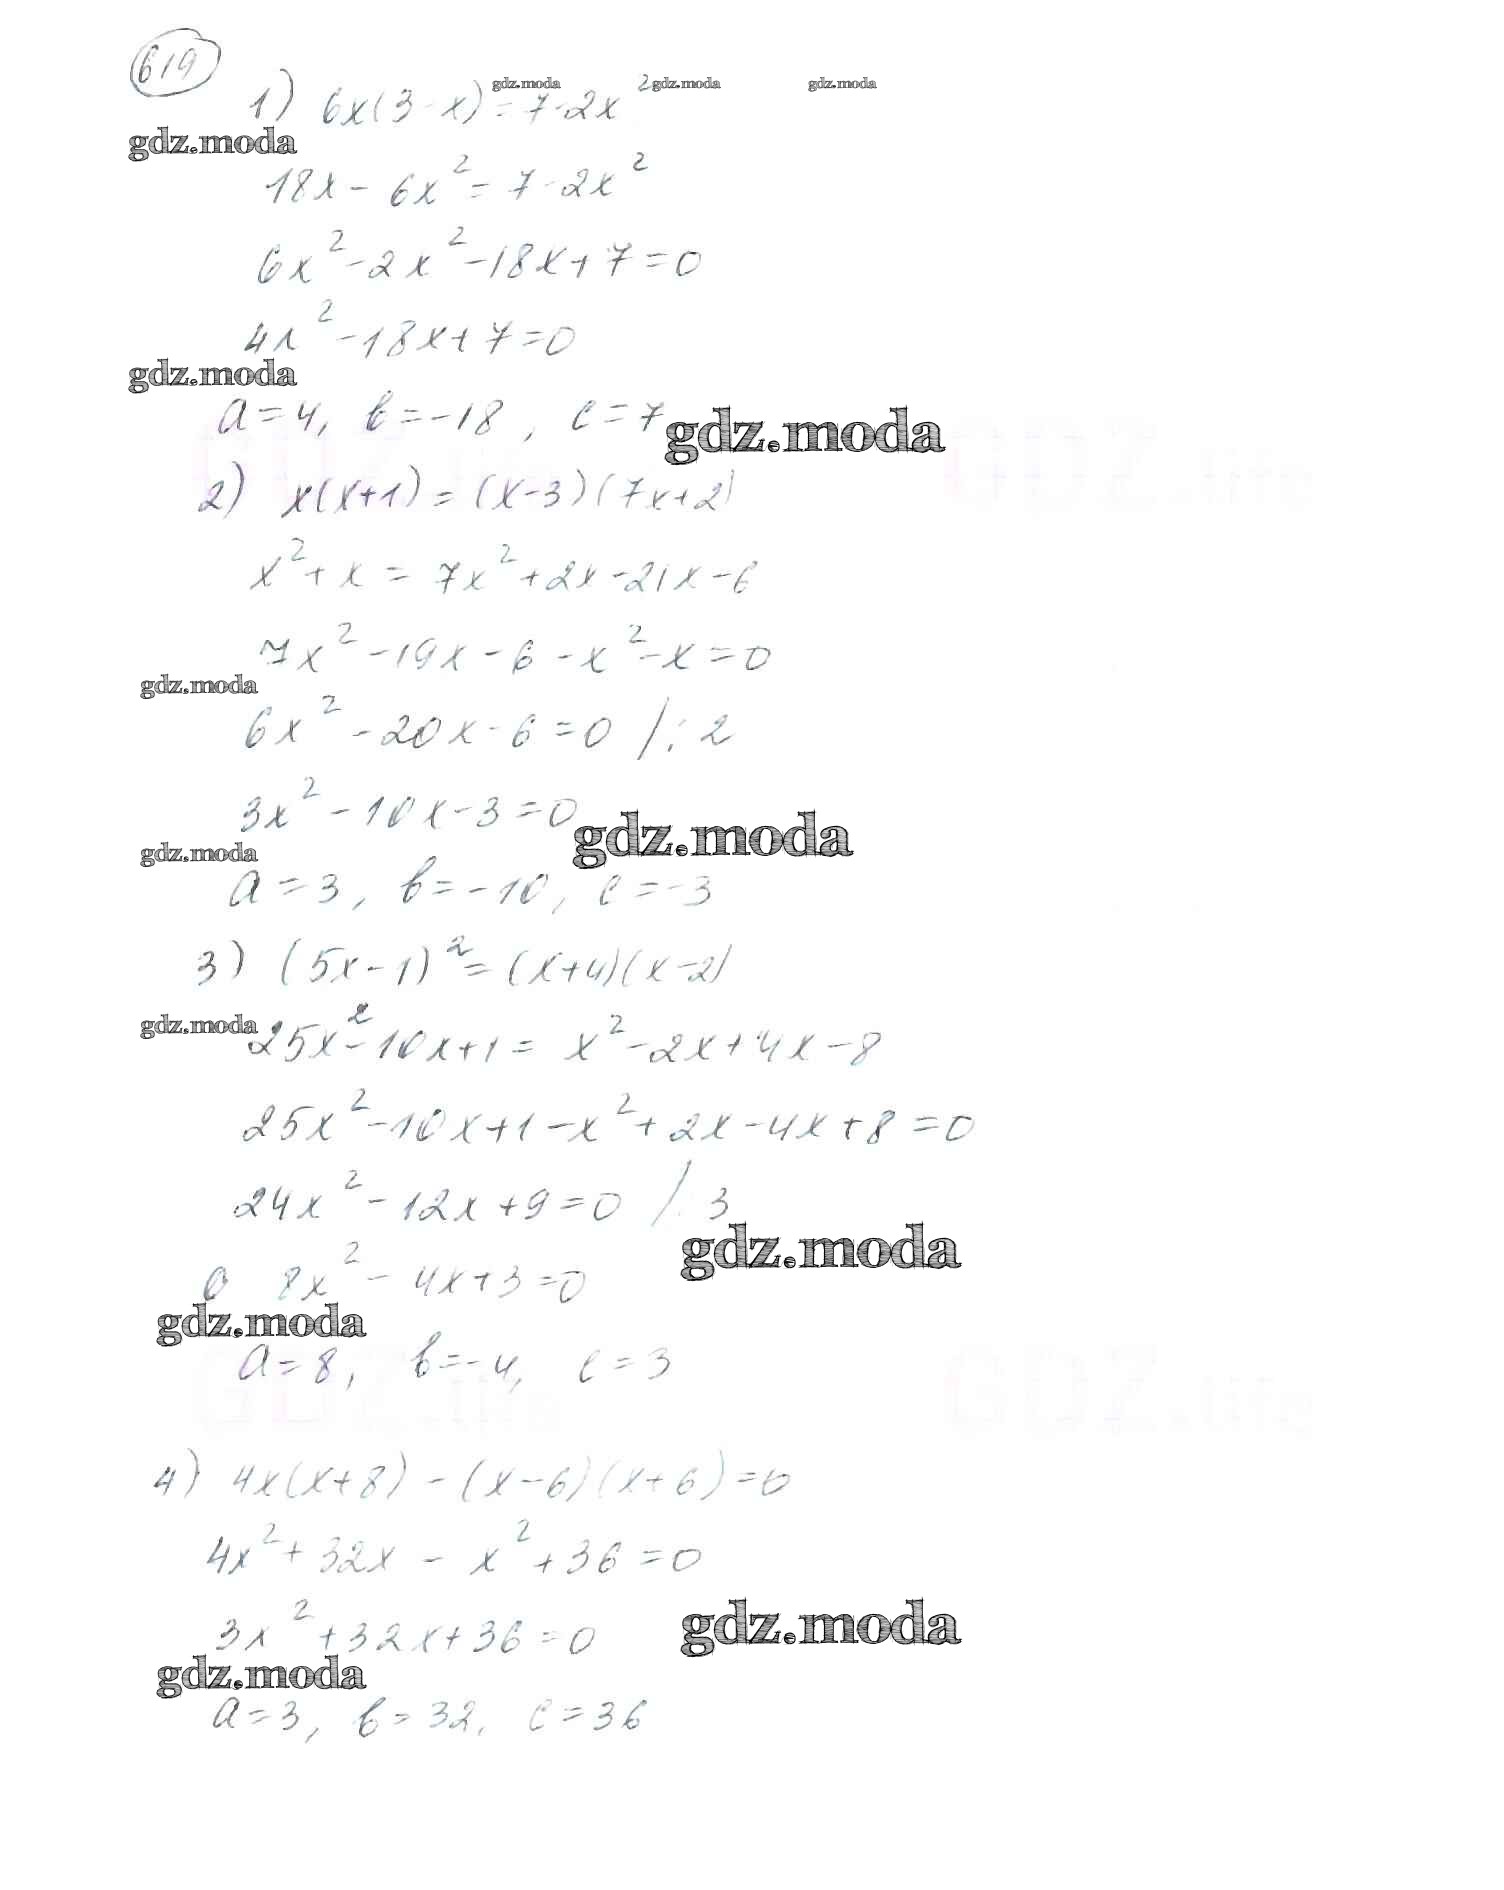 619
1) 6x(3-x)=7-2x²
gdz.moda gdz.moda gdz.moda
gdz.moda
18x-6x²=7-2x²
6x²-2x²-18x+7=0
4x²-18x+7=0
gdz.moda
a=4, b=-18, c=7
gdz.moda
GDZ.life
2) x(x+1)=(x-3)(7x+2)
x²+x=7x²+2x-21x-6
7x²-19x-6-x²-x=0
gdz.moda
6x²-20x-6=0 /:2
3x²-10x-3=0
gdz.moda
gdz.moda
a=3, b=-10, c=-3
3) (5x-1)²=(x+4)(x-2)
gdz.moda
25x²-10x+1=x²-2x+4x-8
25x²-10x+1-x²+2x-4x+8=0
24x²-12x+9=0 /:3
gdz.moda
8x²-4x+3=0
gdz.moda
a=8, b=-4, c=3
GDZ.life GDZ.life
4) 4x(x+8)-(x-6)(x+6)=0
4x²+32x-x²+36=0
3x²+32x+36=0
gdz.moda
gdz.moda
a=3, b=32, c=36